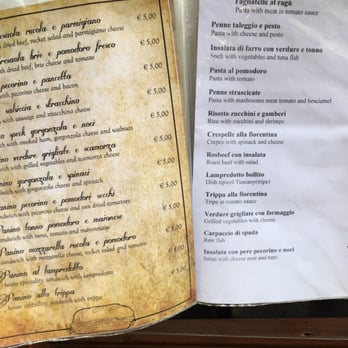 esaola rucola e parmigiano
€ 5,00
dried beef, rocket salad and parmigiano cheese
resaola brie e pomodoro fresco
€ 5,00
dried beef, brie cheese and tomato
pecorino e pancetta
€ 5,00
with pecorino cheese and bacon
salsiccia e stracchino
€ 5,00
with sausage and stracchino cheese
speck gorgonzola e noci
€ 5,00
with smoked ham, gorgonzola cheese and walnuts
ino verdure grigliate e scamorza
€ 5,00
with grilled vegetables and scamorza cheese
nino gorgonzola e spinaci
€ 5,00
gorgonzola cheese and spinach
anino pecorino e pomodori secchi
€ 5,00
sandwich with pecorino cheese and sun dried tomatoes
Panino tonno pomodoro e maionese
€ 5,00
sandwich with tuna, tomato and mayonnaise
Panino mozzarella rucola e pomodoro
€ 5,00
with mozzarella cheese, rocket salad and tomato
Panino al lampredotto
€ 5,00
house speciality, sandwich with lampredotto
Panino alla trippa
€ 5,00
house speciality, sandwich with trippa
Tagliatelle al ragù
Pasta with meat in tomato sauce
Penne taleggio e pesto
Pasta with cheese and pesto
Insalata di farro con verdure e tonno
Spelt with vegetables and tuna fish
Pasta al pomodoro
Pasta with tomato
Penne strascicate
Pasta with mushrooms meat tomato and besciamel
Risotto zucchini e gamberi
Rice with zucchini and shrimps
Crespelle alla fiorentina
Crepes with spinach and cheese
Rosbeef con insalata
Roast beef with salad
Lampredotto bollito
Dish tipical Tuscany(tripe)
Trippa alla fiorentina
Tripe in tomato sauce
Verdure grigliate con formaggio
Grilled vegetables with cheese
Carpaccio di spada
Raw fish
Insalata con pere pecorino e noci
Salad with cheese pear and nuts